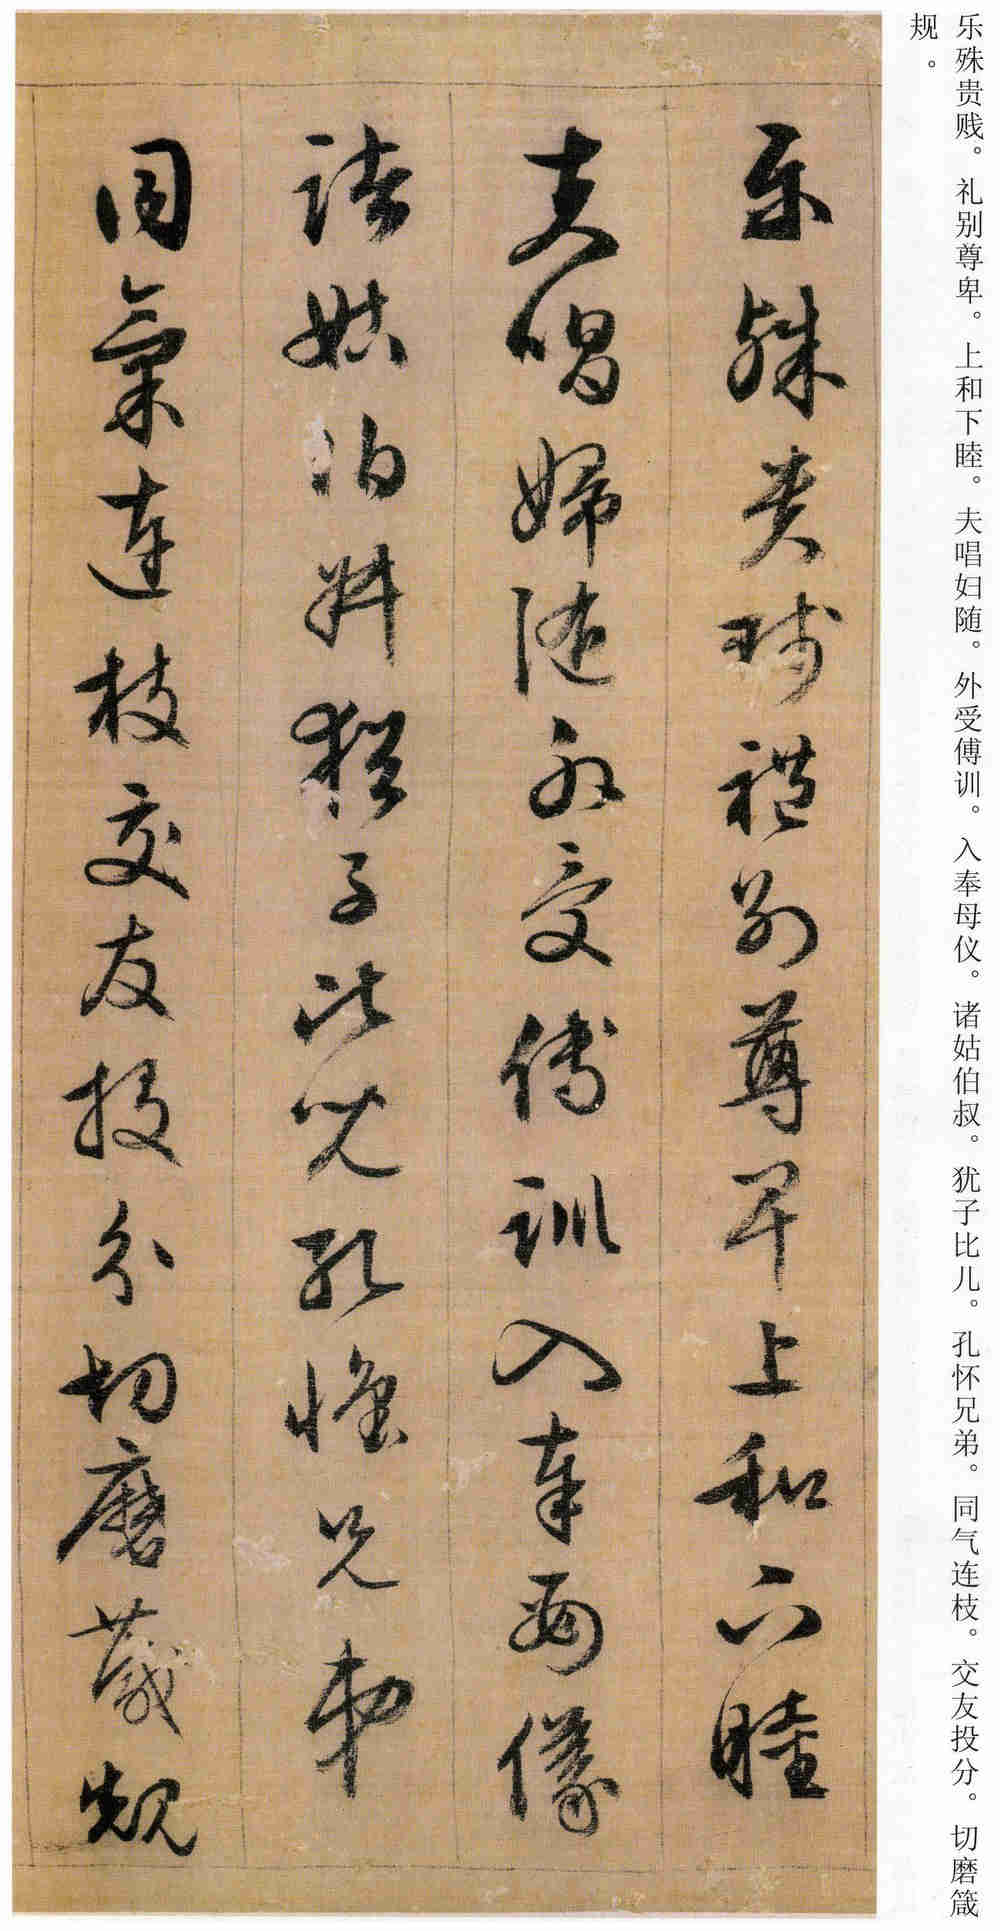 乐殊贵贱。礼别尊卑。上和下睦。夫唱妇随。外受傅训。入奉母仪。诸姑伯叔。犹子比儿。孔怀兄弟。同气连枝。交友投分。切磨箴
规。
乐殊贵贱禮别尊卑上和下睦
夫唱婦随外受傅訓入奉母儀
諸姑伯叔猶子比兒孔懷兄弟
同氣連枝交友投分切磨箴規